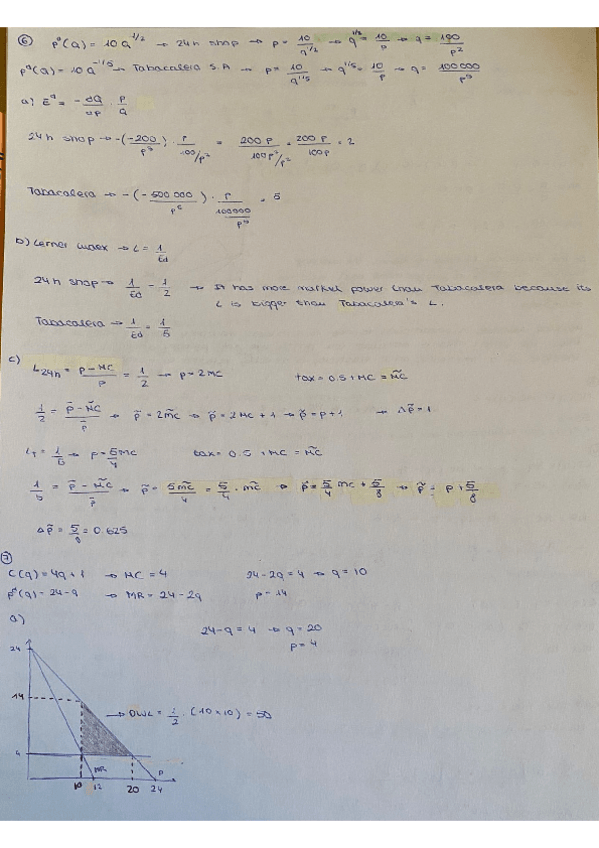 ⑥ pᵈ(q) = 10q^-1/2 → 24h shop → p = 10/q^1/2 → q^1/2 = 10/p → q = 100/p²
pᵈ(q) = 10q^-1/5 → Tabacalera S.A → p = 10/q^1/5 → q^1/5 = 10/p → q = 100000/p⁵
a) Eᵈ = - ∂Q/∂p · p/Q
24h shop → -(-200/p³) · p/(100/p²) = 200p/(100p³/p²) = 200p/100p = 2
Tabacalera → -(-500 000/p⁶) · p/(100000/p⁵) = 5
b) Lerner index → L = 1/Ed
24h shop → 1/Ed = 1/2 → It has more market power than Tabacalera because its
L is bigger than Tabacalera's L.
Tabacalera → 1/Ed = 1/5
c) L24h = (p - MC)/p = 1/2 → p = 2MC tax = 0.5 + MC = M̃C
1/2 = (p̃ - M̃C)/p̃ → p̃ = 2m̃c → p̃ = 2MC + 1 → p̃ = p + 1 → Δp̃ = 1
LT = 1/5 → p = 5/4 MC tax = 0.5 + MC = M̃C
1/5 = (p̃ - M̃C)/p̃ → p̃ = 5m̃c/4 = 5/4 · m̃c → p̃ = 5/4 mc + 5/8 → p̃ = p + 5/8
Δp̃ = 5/8 = 0.625
⑦
C(q) = 4q + 1 → MC = 4 24 - 2q = 4 → q = 10
pᵈ(q) = 24 - q → MR = 24 - 2q p = 14
a)
24 - q = 4 → q = 20
p = 4
24
14
→ DWL = 1/2 · (10 × 10) = 50
4
MR D
10 12 20 24